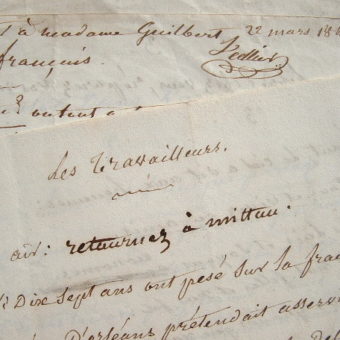 à madame Guilbert 22 mars 18
français.
Les Travailleurs.
air: retournez à mittau.
Dix Sept ans ont pesé sur la fra
D'orléans prétendait asserv